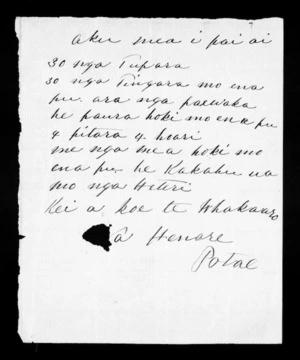 aku mea i pai ai
30 nga Tupara
30 nga Tingara mo ena
pu. ara nga paewaka
he paura hoki mo ena pu
4 pitara 4 hoari
me nga mea hoki mo
ena pu, he Kakahu ua
mo nga
Kei a koe te Whakaaro
Henare
Potae